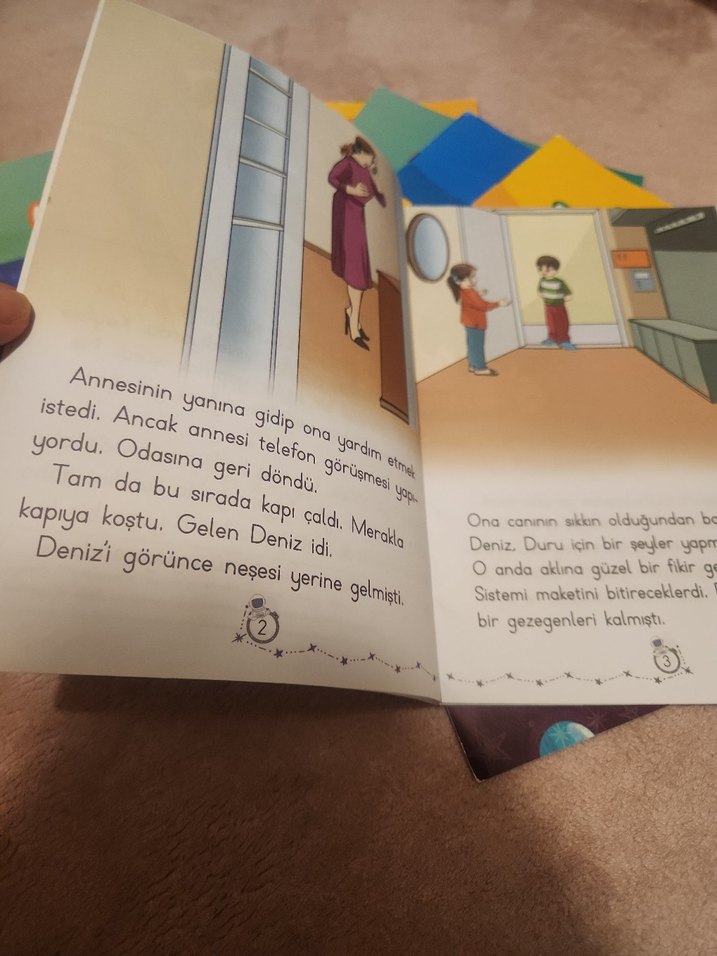 Annesinin yanına gidip ona yardım etmek
istedi. Ancak annesi telefon görüşmesi yapı-
yordu. Odasına geri döndü.
Tam da bu sırada kapı çaldı. Merakla
kapıya koştu. Gelen Deniz idi.
Deniz'i görünce neşesi yerine gelmişti.
2
Ona canının sıkkın olduğundan
Deniz, Duru için bir şeyler
O anda aklına güzel bir fikir
Sistemi maketini bitireceklerdi.
bir gezegenleri kalmıştı.
3